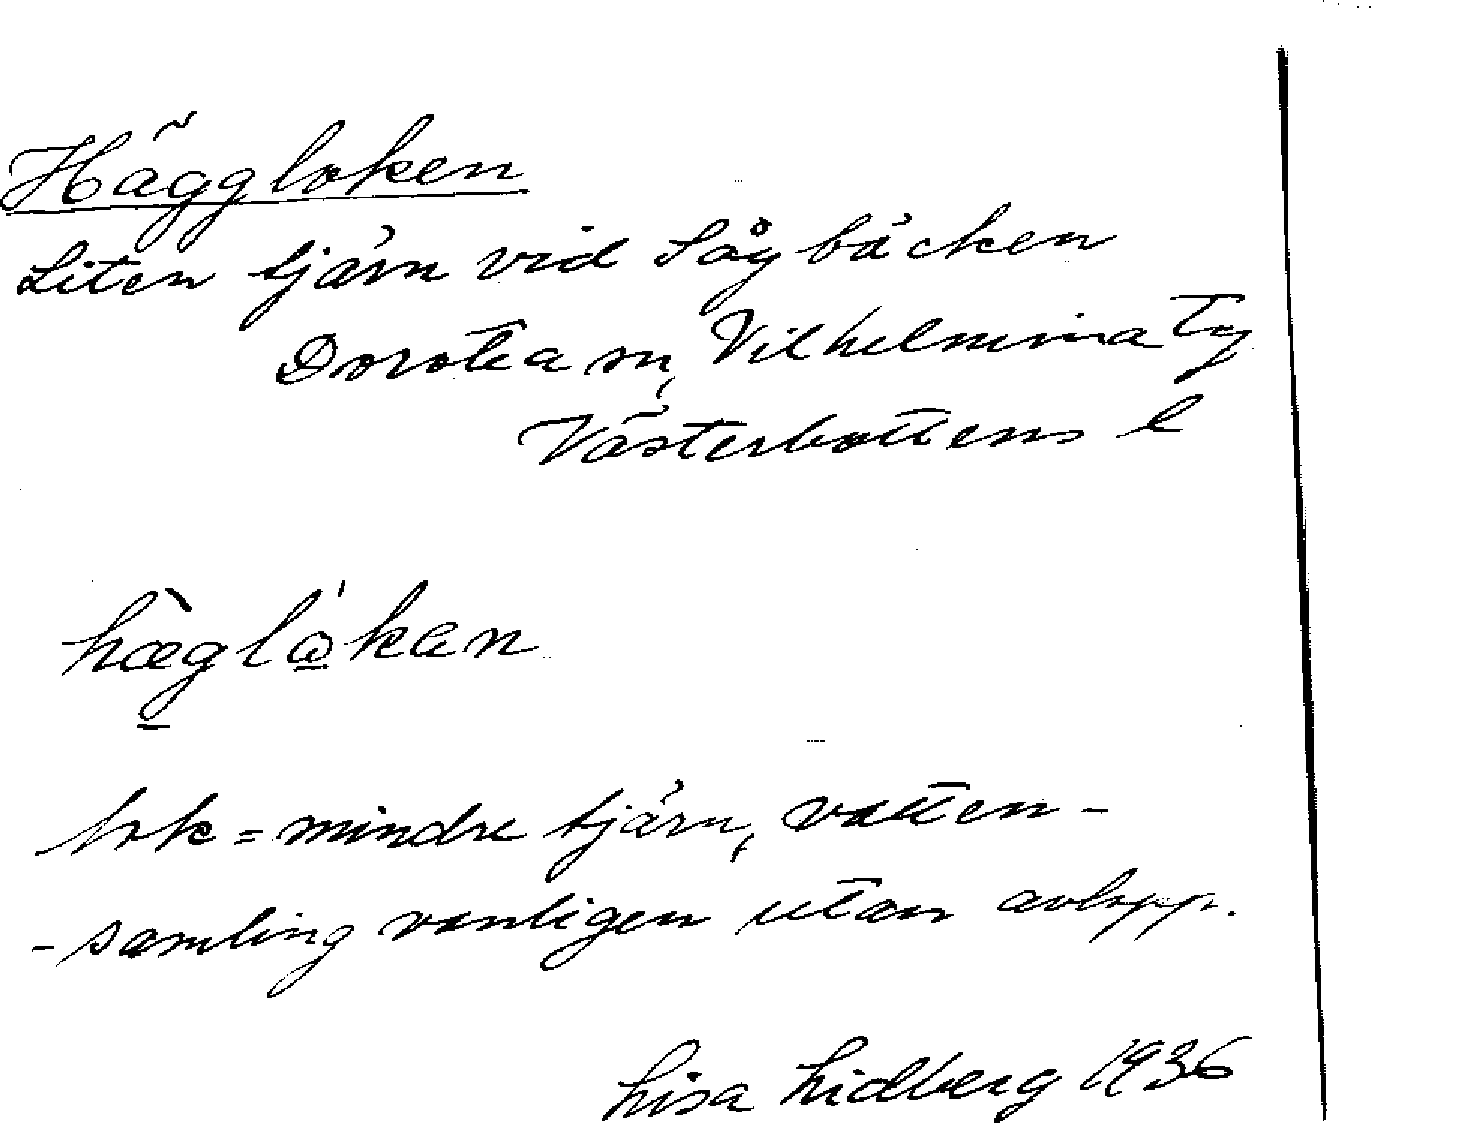 Häggloken
Liten tjärn vid Sågbäcken
Dorotea sn, Vilhelmina tg
Västerbottens l
hæglåkan
lok = mindre tjärn, vatten-
-samling vanligen utan avlopp.
Lisa Lidberg 1936